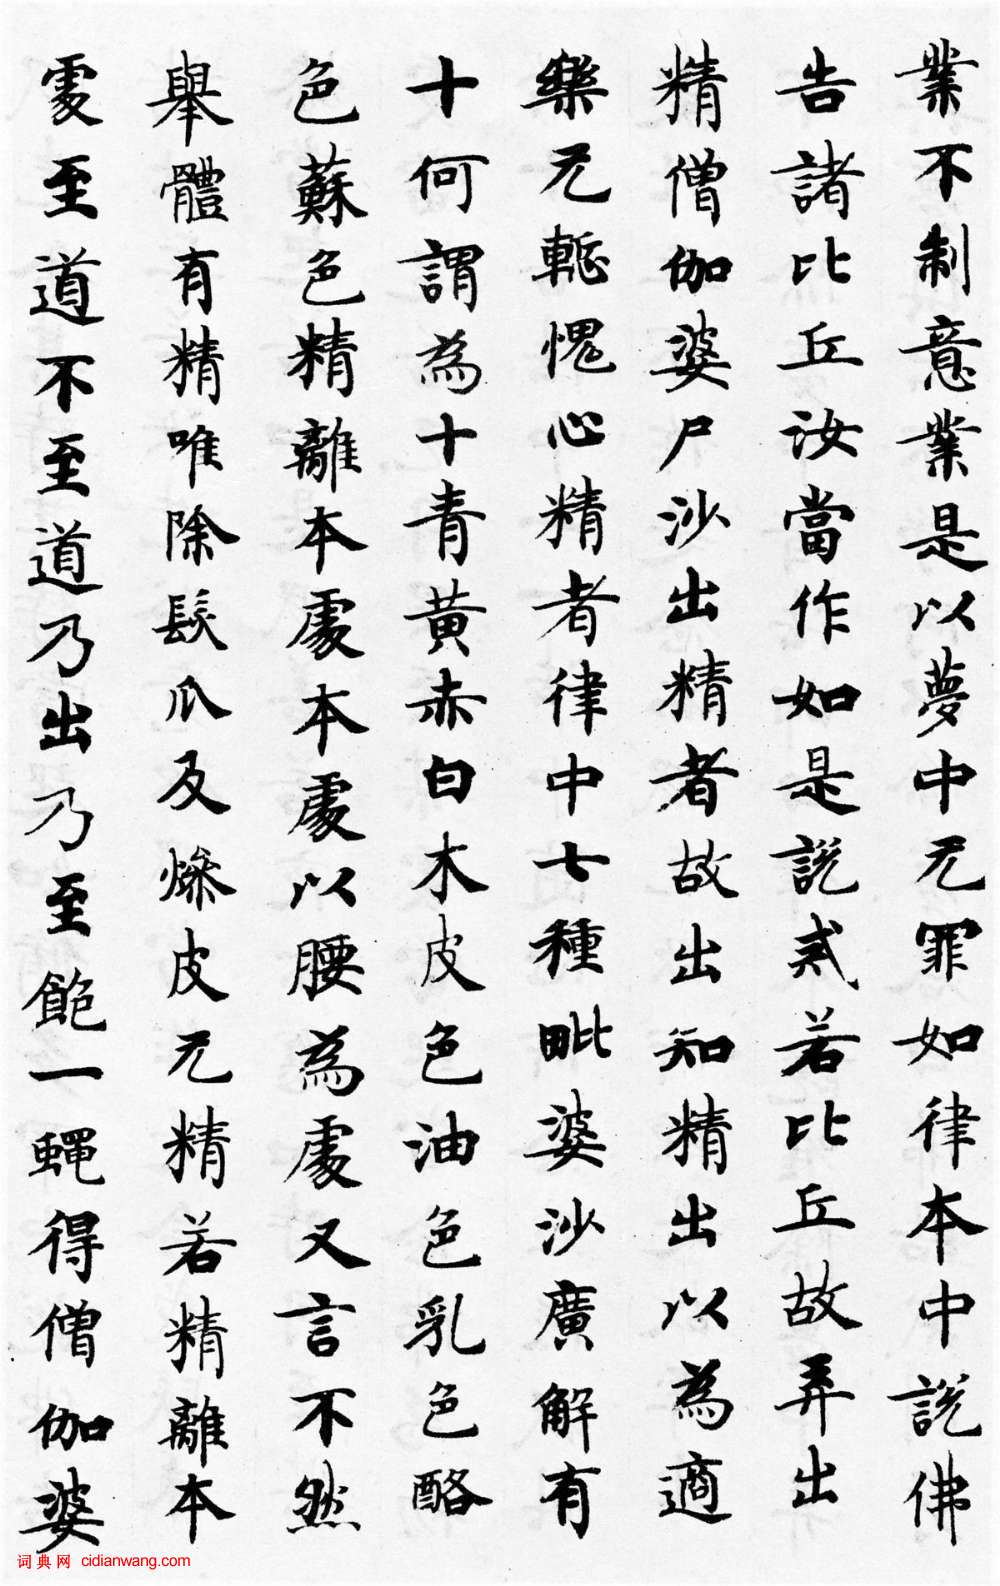 業不制意業是以夢中无罪如律本中說佛
告諸比丘汝當作如是說戒若比丘故弄出
精僧伽婆尸沙出精者故出知精出以為適
樂无慙愧心精者律中七種毗婆沙廣解有
十何謂為十青黃赤白木皮色油色乳色酪
色蘇色精離本處本處以腰為處又言不然
舉體有精唯除髮爪及燥皮无精若精離本
處至道不至道乃出乃至飽一蠅得僧伽婆
词典网 cidianwang.com